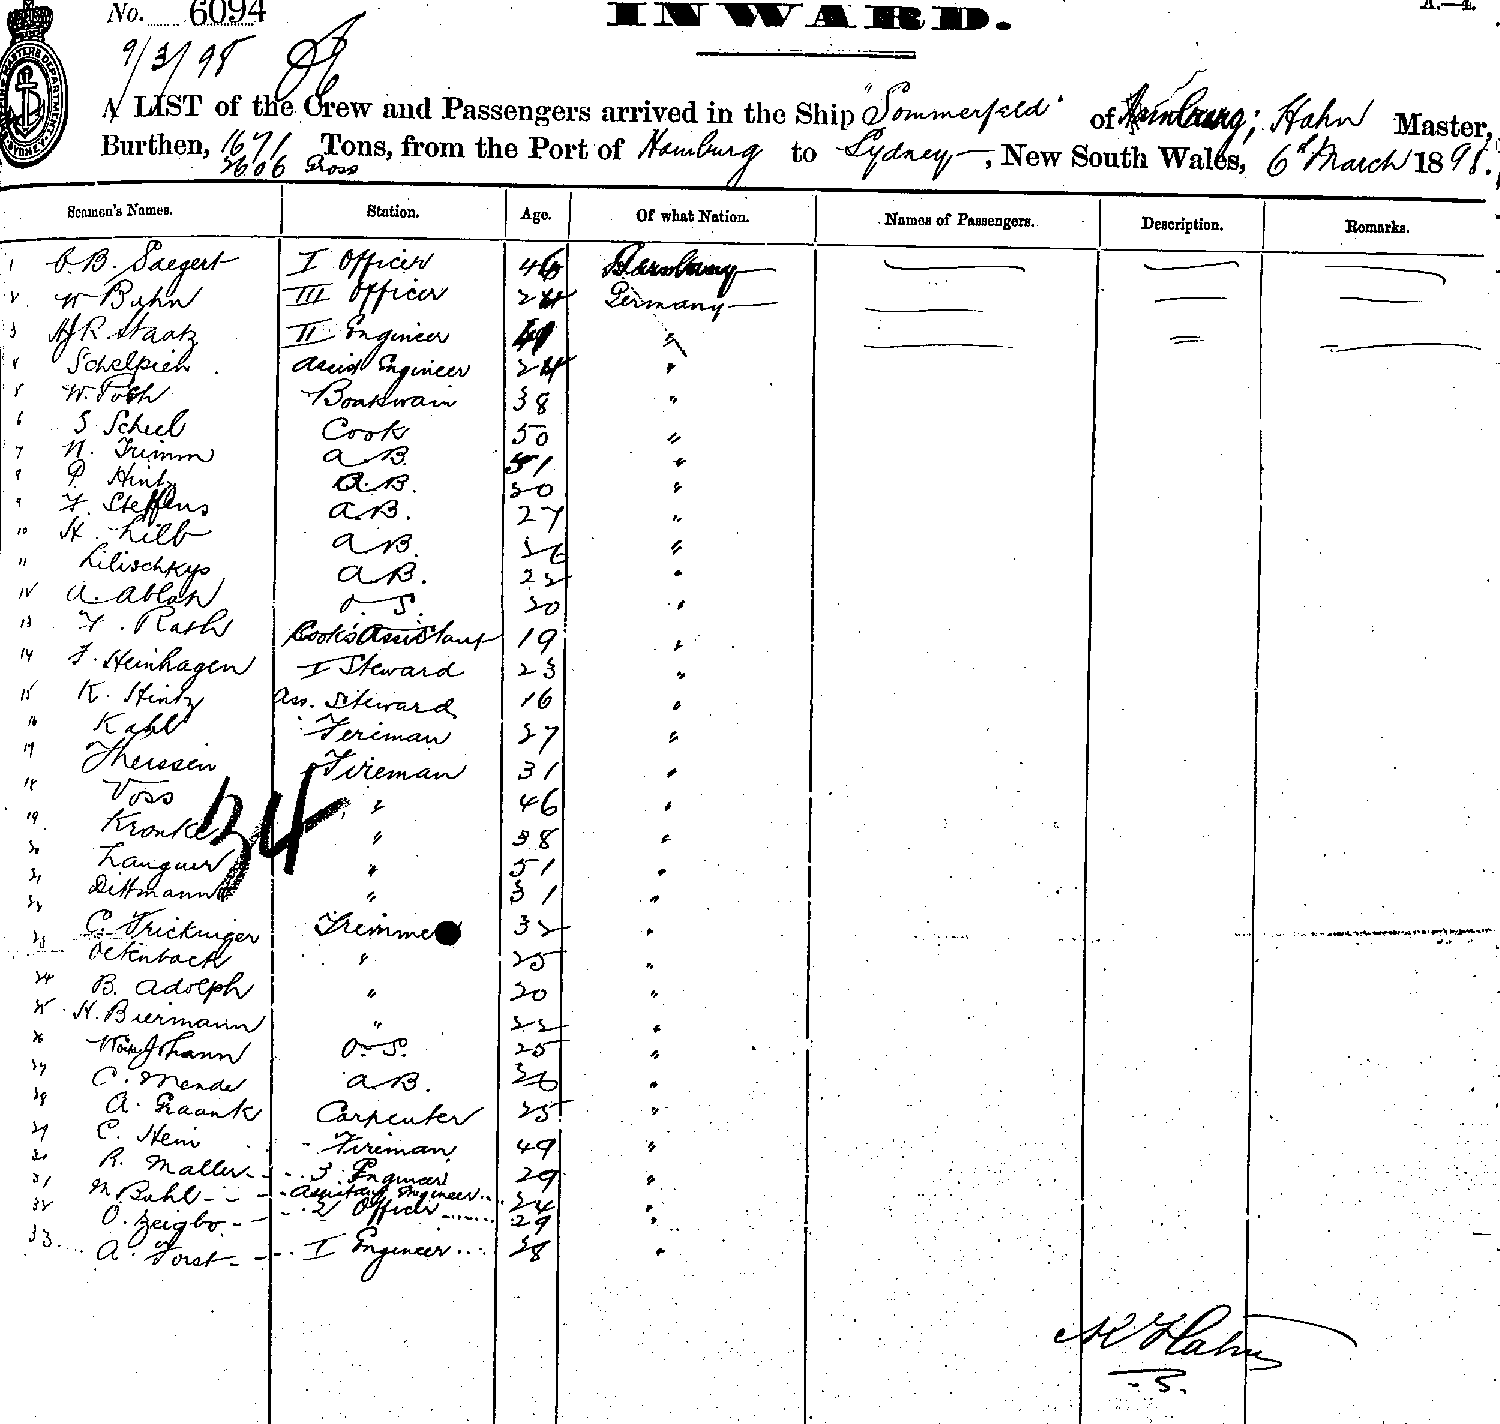 No. 6094
INWARD.
A.—4.
9/3/98
A LIST of the Crew and Passengers arrived in the Ship "Sommerfeld" of Hamburg; Hahn Master,
Burthen, 1671 Tons, from the Port of Hamburg to Sydney, New South Wales, 6th March 1898.
2606 Gross
Seamen's Names. Station. Age. Of what Nation. Names of Passengers. Description. Remarks.
1 Saegert I Officer 46
2 W Bahn III Officer 24 Germany
3 R. Staatz II Engineer "
4 Schelpien Assist Engineer 24 "
5 W. Boatswain 38 "
6 S Scheel Cook 50 "
7 Grimm A B. 51 "
8 P. Hintz A.B. 20 "
9 F. Steffens A.B. 27 "
10 H. Lilb A B. "
11 Lilischkys A B. 22 "
12 A. Ablah O. S. 20 "
13 F. Rath Cook's Assistant 19 "
14 F. Heinhagen I Steward 23 "
15 K. Hintz Ass. Steward 16 "
16 Kahl Fireman 27 "
17 Theissen Fireman 31 "
18 Voss " 46 "
19 Kronke " 38 "
20 Languer " 51 "
21 Dittmann " 31 "
34
22 C. Frickinger Trimmer 32 "
23 Oekenbach " 25 "
24 B. Adolph " 20 "
25 H. Biermann " 22 "
26 Johann O. S. 25 "
27 C. Mende A B. 26 "
28 A. Graank Carpenter 25 "
29 C. Hein Fireman 49 "
30 R. Maller 3 Engineer 29 "
31 M Buhl Assistant Engineer 24 "
32 O. Zeigbo 2 Officer 29 "
33 A. Forst I Engineer 38 "
Hahn